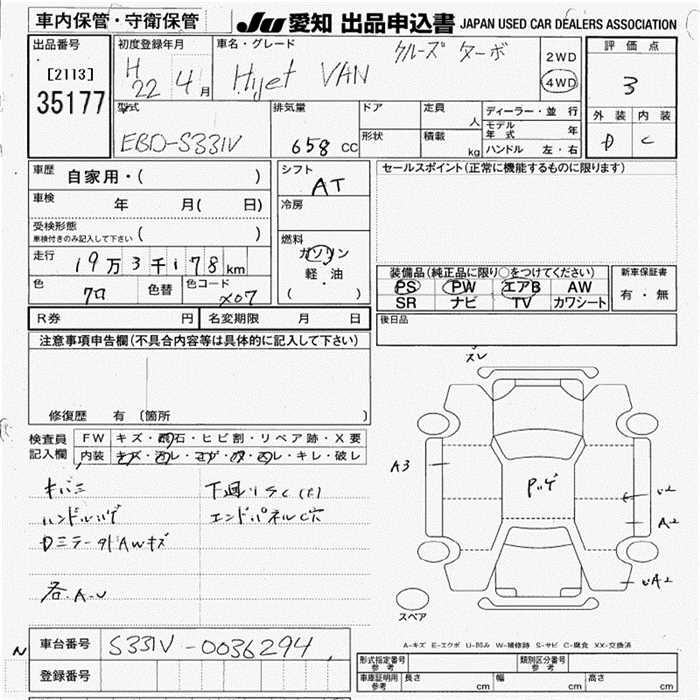 車内保管・守衛保管
JU 愛知 出品申込書 JAPAN USED CAR DEALERS ASSOCIATION
出品番号
[2113]
35177
初度登録年月
H 22 4月
車名・グレード
クルーズ ターボ
Hijet VAN
2WD
4WD
評価点
3
外装 内装
D C
型式
EBD-S331V
排気量
658 cc
ドア
形状
定員
人
積載
kg
ディーラー・並行
モデル年式 年
ハンドル 左・右
車歴 自家用・( )
車検 年 月( 日)
受検形態
車検付きのみ記入して下さい ( )
走行 19万3千178km
色 クロ 色替 色コード X07
シフト
AT
冷房
燃料
ガソリン
軽・油
( )
セールスポイント(正常に機能するものに限ります)
装備品(純正品に限り○をつけてください)
PS PW エアB AW
SR ナビ TV カワシート
新車保証書
有・無
後日品
R券 円 名変期限 月 日
注意事項申告欄(不具合内容等は具体的に記入して下さい)
修復歴 有 (箇所 )
検査員
記入欄
FW キズ・飛石・ヒビ割・リペア跡・X要
内装 キズ・汚レ・コゲ・穴・凹レ・キレ・破レ
キバミ 下廻りSC(ナ)
ハンドルハゲ エンドパネルC穴
Dミラー外AWキズ
各.A-U
スレ
A3
Pハゲ
U2
A2
UA2
スペア
A-キズ E-エクボ U-凹み W-補修跡 S-サビ C-腐食 XX-交換済
N
車台番号 S331V-0036294
登録番号
形式指定番号
参考
類別区分番号
参考
車庫証明用
参考
長さ cm 幅 cm 高さ cm